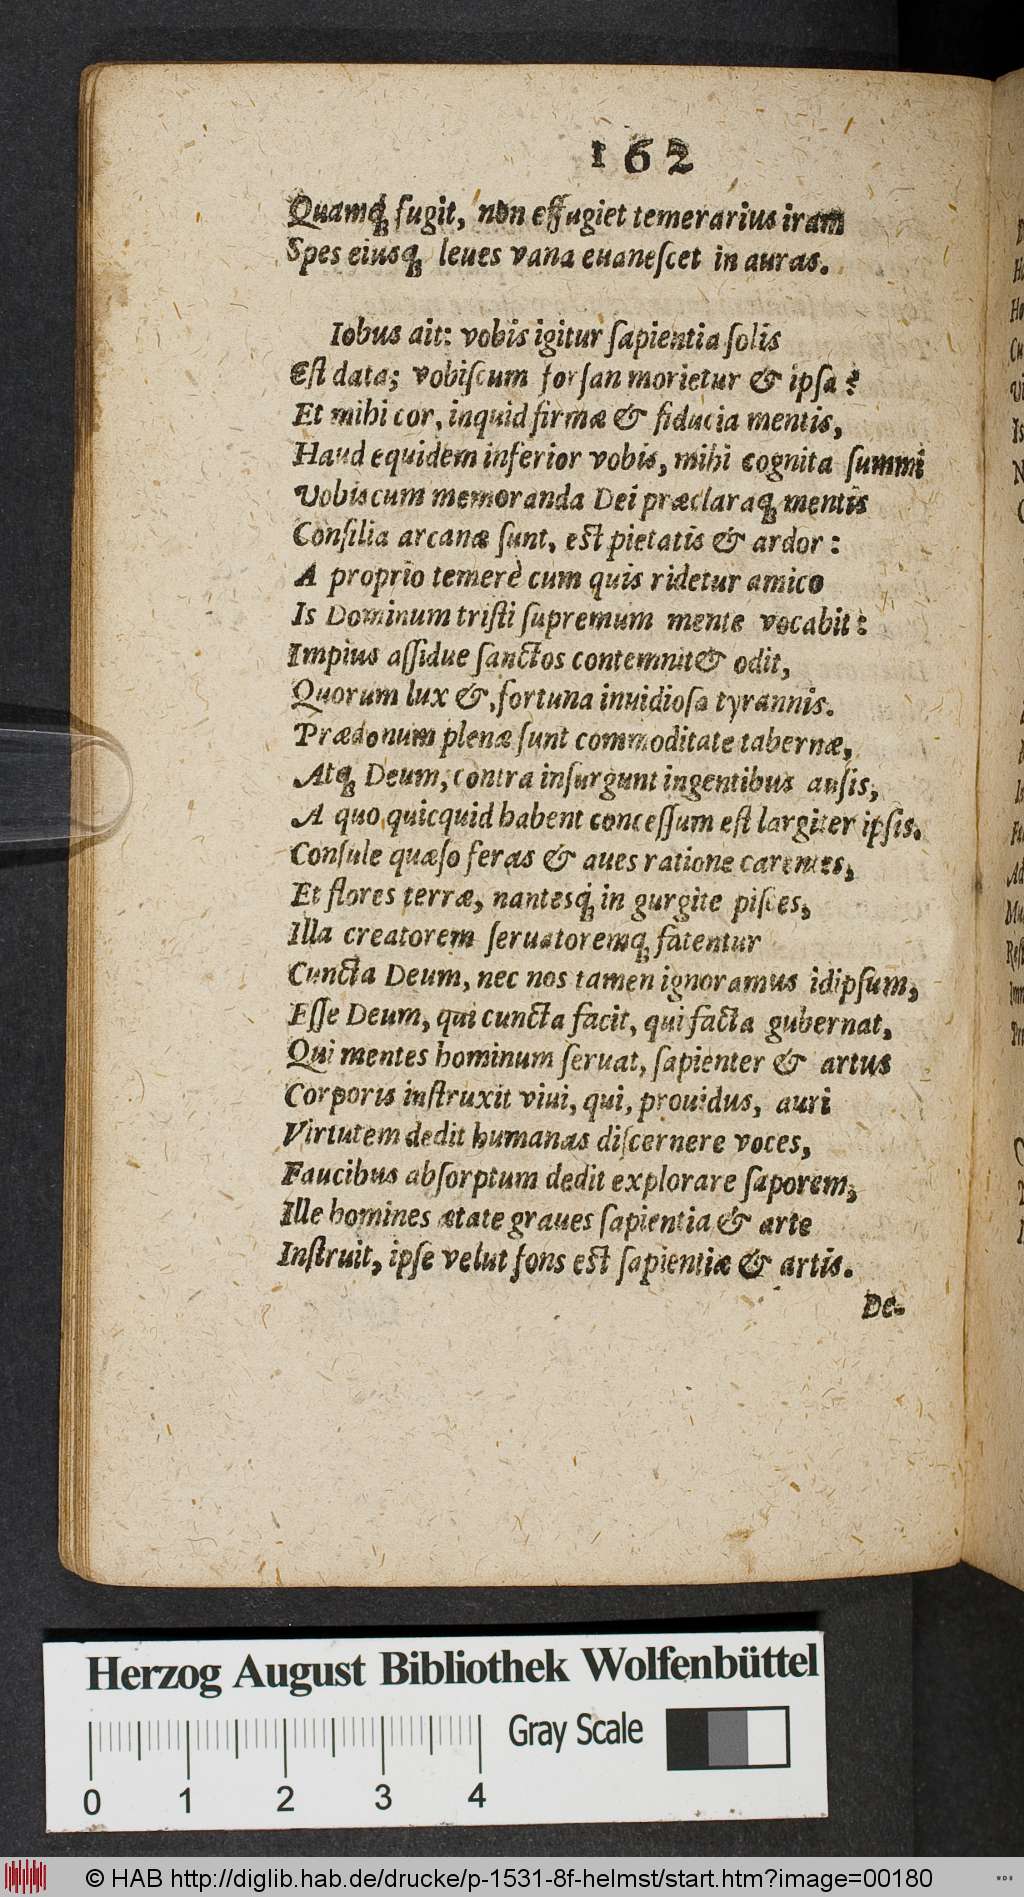 162
Quamq́; fugit, non effugiet temerarius iram
Spes eiusq; leues vana euaneſcet in auras.
Iobus ait: vobis igitur ſapientia ſolis
Eſt data; vobiſcum forſan morietur & ipſa?
Et mihi cor, inquid firmæ & fiducia mentis,
Haud equidem inferior vobis, mihi cognita ſummi
Vobiscum memoranda Dei præclaraq; mentis
Conſilia arcanæ ſunt, eſt pietatis & ardor:
A proprio temerè cum quis ridetur amico
Is Dominum triſti ſupremum mente vocabit:
Impius aſſidue ſanctos contemnit & odit,
Quorum lux &, fortuna inuidioſa tyrannis.
Prædonum plenæ ſunt commoditate tabernæ,
Atq; Deum, contra inſurgunt ingentibus auſis,
A quo quicquid habent conceſſum eſt largiter ipſis.
Conſule quæſo feras & aues ratione carentes,
Et flores terræ, nantesq́; in gurgite piſces,
Illa creatorem ſeruatoremq; fatentur
Cuncta Deum, nec nos tamen ignoramus idipſum,
Eſſe Deum, qui cuncta facit, qui facta gubernat,
Qui mentes hominum ſeruat, ſapienter & artus
Corporis inſtruxit viui, qui, prouidus, auri
Virtutem dedit humanas diſcernere voces,
Faucibus abſorptum dedit explorare ſaporem,
Ille homines ætate graues ſapientia & arte
Inſtruit, ipſe velut fons eſt ſapientiæ & artis.
De-
Herzog August Bibliothek Wolfenbüttel
Gray Scale
0 1 2 3 4
© HAB http://diglib.hab.de/drucke/p-1531-8f-helmst/start.htm?image=00180